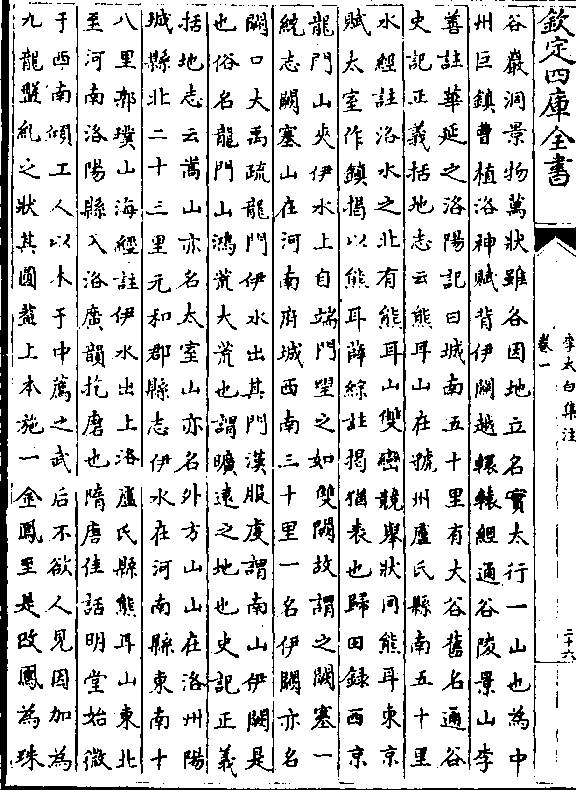 欽定四庫全書
李太白集注
卷一
二十六
谷巖洞景物萬狀雖各因地立名實太行一山也為中
州巨鎮曹植洛神賦背伊闕越轘轅經通谷陵景山李
善註華延之洛陽記曰城南五十里有大谷舊名通谷
史記正義括地志云熊耳山在虢州盧氏縣南五十里
水經註洛水之北有熊耳山雙巒競舉狀同熊耳東京
賦太室作鎮揭以熊耳薛綜註揭猶表也歸田録西京
龍門山夾伊水上自端門望之如雙闕故謂之闕塞一
統志闕塞山在河南府城西南三十里一名伊闕亦名
闕口大禹疏龍門伊水出其門漢服虔謂南山伊闕是
也俗名龍門山鴻荒大荒也謂曠逺之地也史記正義
括地志云嵩山亦名太室山亦名外方山山在洛州陽
城縣北二十三里元和郡縣志伊水在河南縣東南十
八里郭璞山海經註伊水出上洛盧氏縣熊耳山東北
至河南洛陽縣入洛廣韻扢磨也隋唐佳話明堂始微
于西南傾工人以木于中薦之武后不欲人見因加為
九龍盤糺之狀其圓葢上本施一金鳳至是改鳳為珠